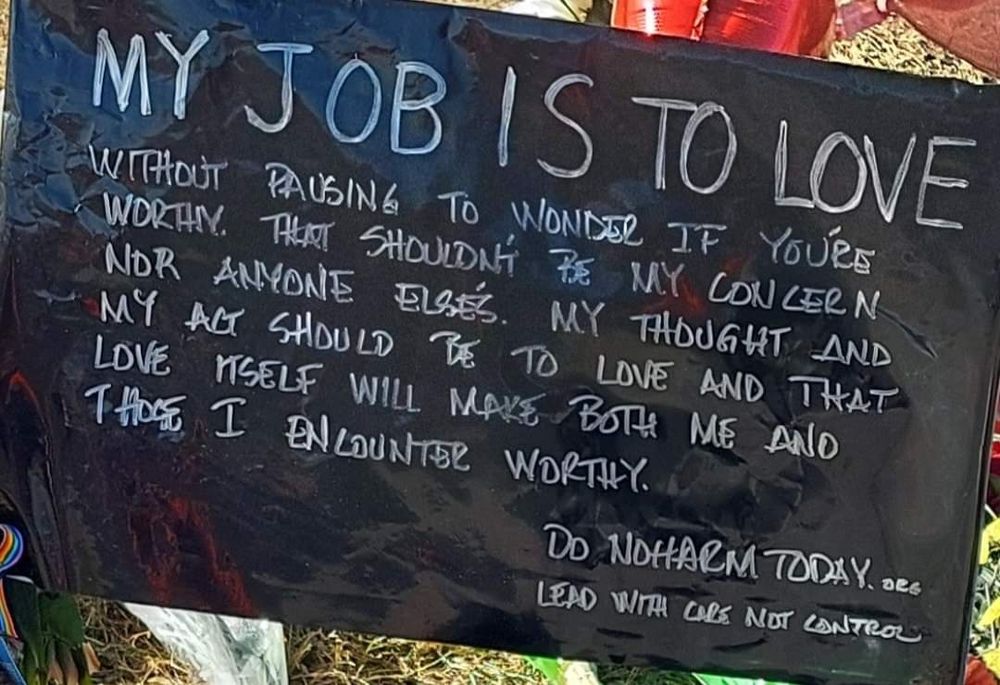 MY JOB IS TO LOVE
WITHOUT PAUSING TO WONDER IF YOU'RE
WORTHY. THAT SHOULDN'T BE MY CONCERN
NOR ANYONE ELSE'S. MY THOUGHT AND
MY ACT SHOULD BE TO LOVE AND THAT
LOVE ITSELF WILL MAKE BOTH ME AND
THOSE I ENCOUNTER WORTHY.
DO NOHARM TODAY.ORG
LEAD WITH CARE NOT CONTROL